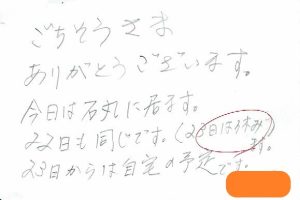 ごちそうさま
ありがとうございます。
今日は石丸に居ます。
22日も同じです。(23日は休みです。
23日からは自宅の予定です。